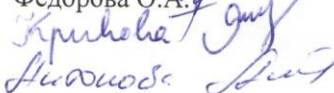 Федорова О.А.
Крикова
Антонова